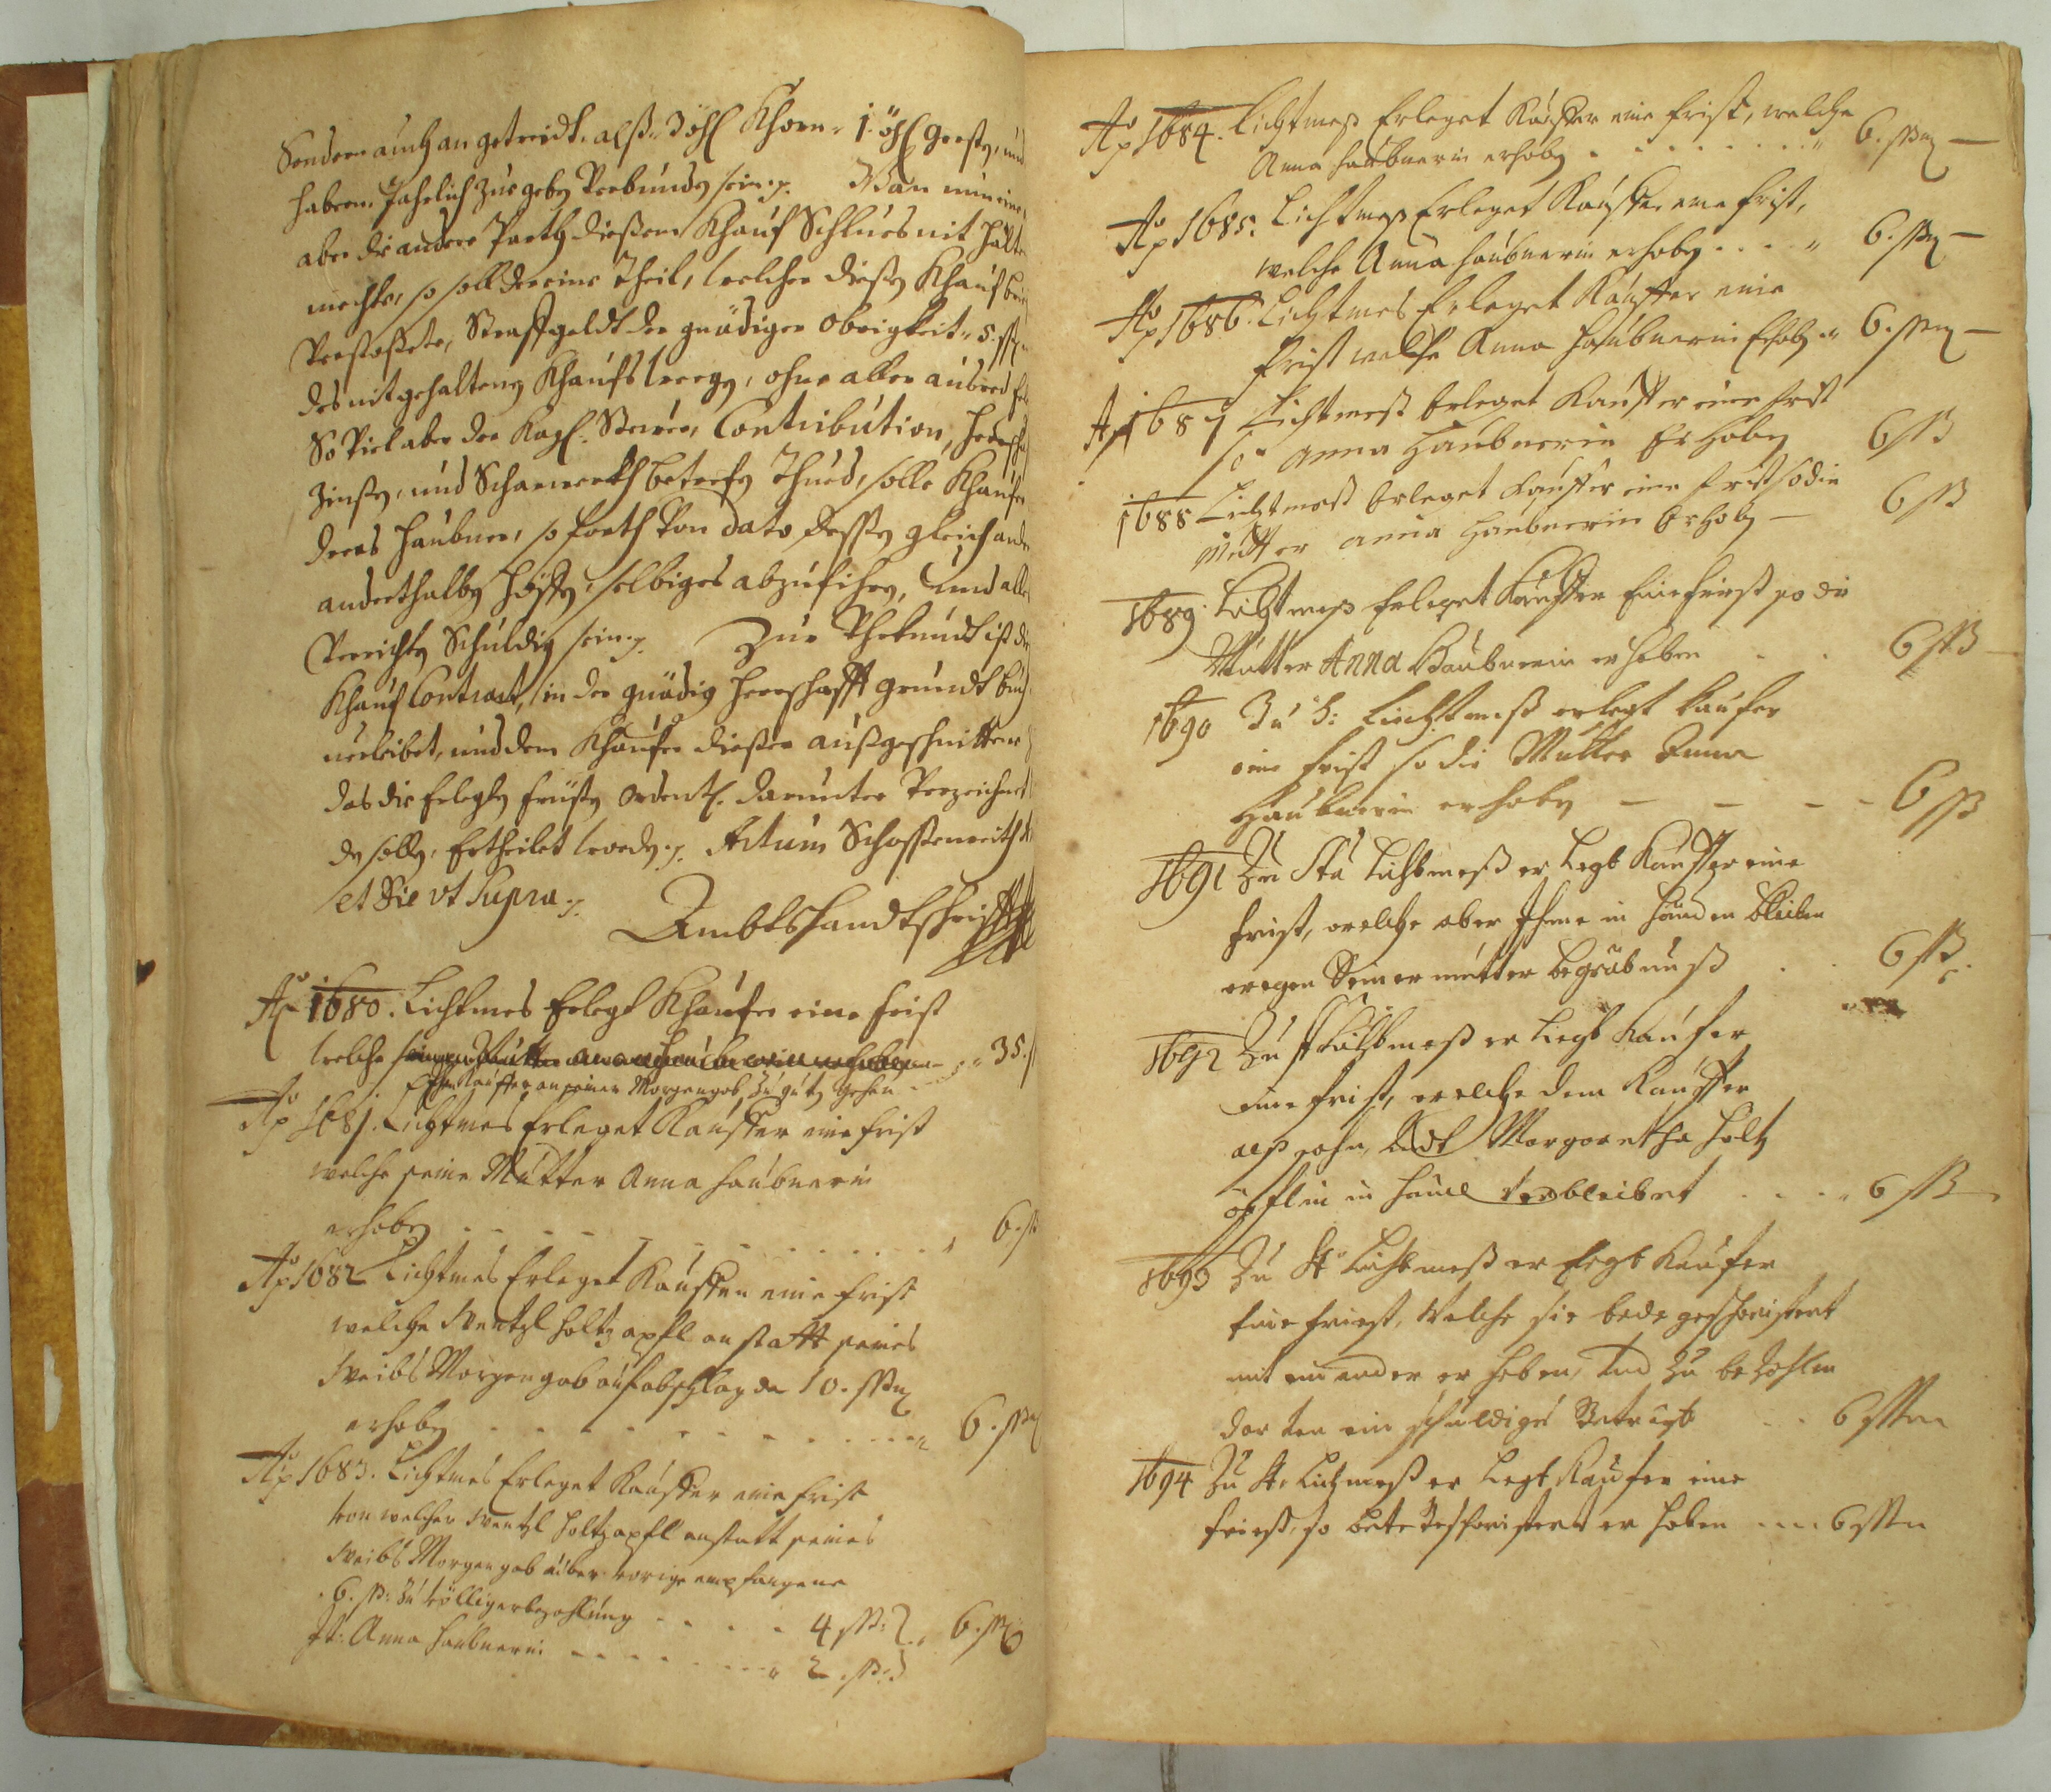 Sondern auch an getreidt, alß 3 öhl Khorn, 1 öhl gersten, und
habern, Jahrlich zue geben verbunden sein. Wan nun eine
aber die andere Parthey dießem Khauf Schlues nit halten
mechte, so soll der eine Theil, welcher dießen Khauf
Verstoßete, Straffgeldt der gnädigen Obrigkeit 5 ßo
des nit gehaltenen Khaufs wegen, ohne alle ausred
So Viel aber der Steuer, Contribution,
Zinßen, und Scharwerkh betrefen Thued, solle Khaufer
Haubner, so forth von dato
anderthalben selbiges abzufihren, und alles
Verrichten Schuldig sein. Zur Uhrkundt ist dieser
Khauf Contract, in der gnädig Herrschafft grundt buch
einverleibet, und dem Khaufer dießer außgeschnittener
das die Erlegten fristen Ordentl. darunter Verzeichnet
den sollen, Ertheilet worden. Actum Schossenreith
et Die ut Supra.
Ambtshandtschrifft
Ao 1680. Lichtmes Erlegt Khaufer eine frist
welche 35 ß
Kauffer an seiner Morgengab zu gutem gehen
Ao 1681. Lichtmes Erleget Kauffer eine frist
welche seine Mutter Anna Haubnerin
erhoben 6. ß
Ao 1682 Lichtmes Erleget Kauffer eine frist
welche Wentzl Holtzapfl anstatt seines
Weibs Morgengab auf abschlag der 10. ßo
erhoben 6. ßo
Ao 1683. Lichtmes Erleget Kauffer eine frist
von welcher Wentzl Holtzapfl anstatt seines
Weibs Morgengab über vorige empfangene
6. ß: zu völliger bezahlung 4 ß: 6. ßo
It: Anna Haubnerin 2. ß:
Ao 1684. Lichtmeß Erleget Kauffer eine frist, welche
Anna Haubnerin erhoben 6. ßo —
Ao 1685. Lichtmeß Erleget Kauffer eine frist,
welche Anna Haubnerin erhoben 6. ßo —
Ao 1686. Lichtmes Erleget Kauffer eine
frist welche Anna Haubnerin Erhoben 6. ßo —
Ao 1687 Lichtmeß Erleget Kauffer eine frist
so anna Haubnerin Erhoben 6 ß
1688 Lichtmeß Erleget Kauffer eine frist so die
Mutter anna Haubnerin Erhoben — 6 ß
1689. Lichtmeß Erleget Kauffer Eine frist so die
Mutter Anna Haubnerin erhoben 6 ß
1690 Zu h: Liechtmeß erlegt Kaufer
eine frist so die Mutter Anna
Haubnerin erhoben — — — 6 ß
1691 Zu Lichtmeß er Legt Kauffer eine
frist, welche aber Ihme in händen bleiben
wegen Seiner mutter begräbnuß 6 ß.
1692 Zu St Lichtmeß er Liegt Kaufer
eine frist, welche dem Kauffer
alß sohn, Undt Margaretha Holtz
öpflin in handl verbleibet 6 ß
1693 Zu St Lichtmeß er Legt Kaufer
Eine friest, Welche sie bede geschwistert
mit einander er heben, Und zu bezahlen
ein schuldiges 6 ßo
1694 Zu St: Lichmeß er Legt Kaufer eine
friest, so bete Geschwistert er heben 6 ßo